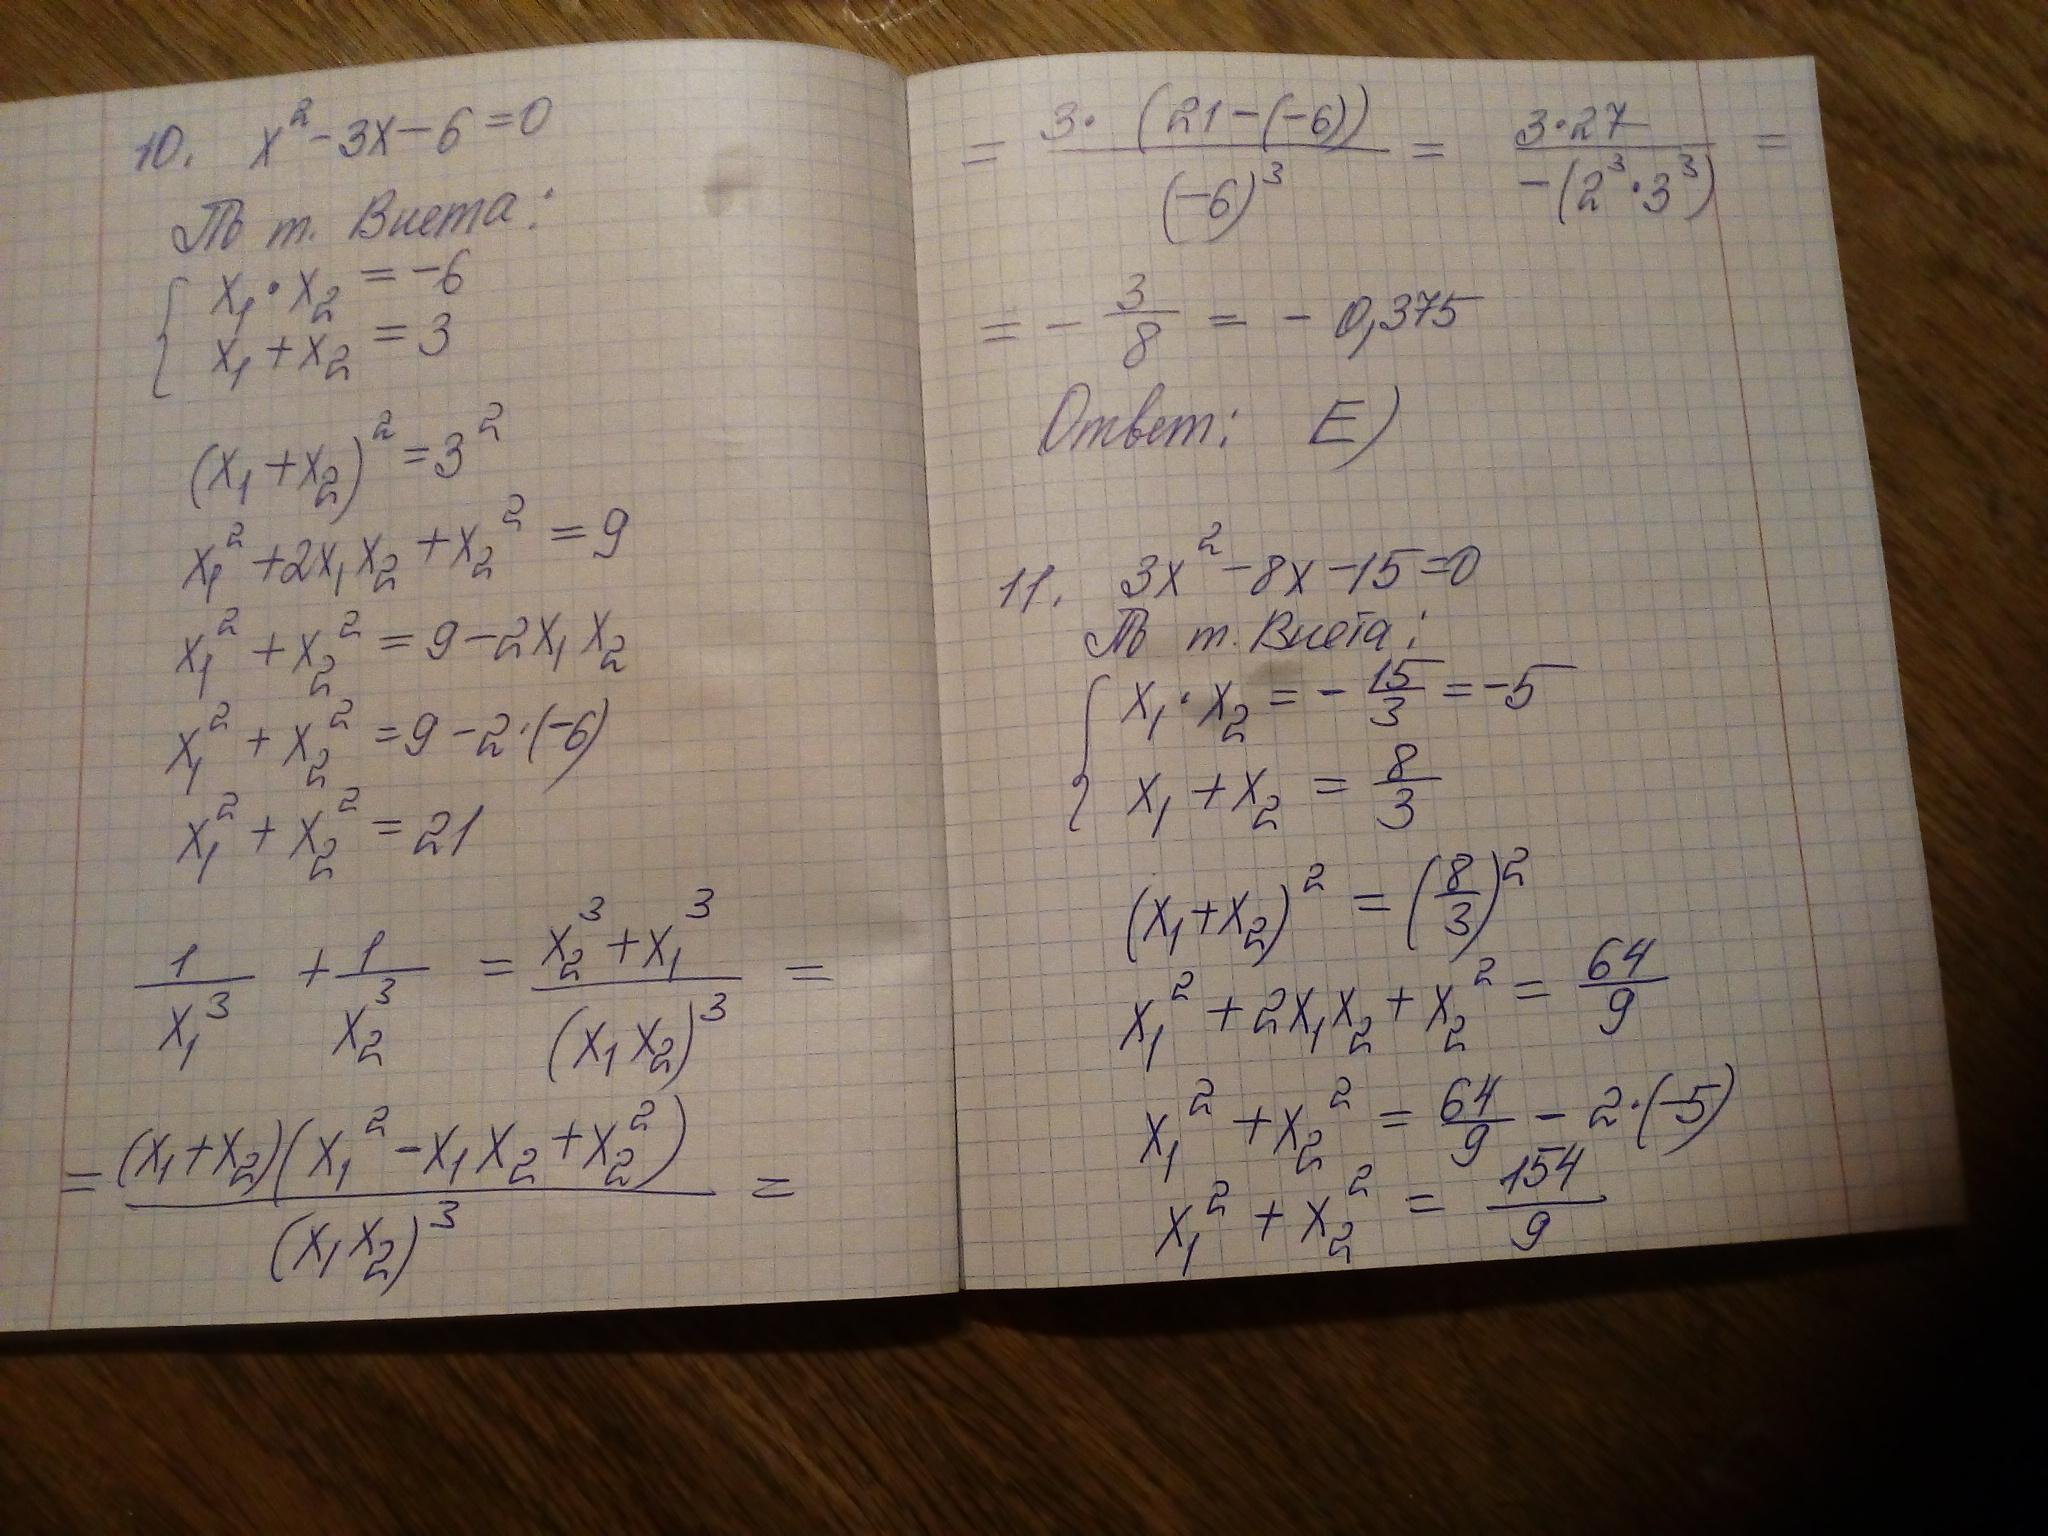 10. x² - 3x - 6 = 0
По т. Виета:
x₁ · x₂ = -6
x₁ + x₂ = 3
(x₁ + x₂)² = 3²
x₁² + 2x₁x₂ + x₂² = 9
x₁² + x₂² = 9 - 2x₁x₂
x₁² + x₂² = 9 - 2·(-6)
x₁² + x₂² = 21
1/x₁³ + 1/x₂³ = (x₂³ + x₁³)/(x₁x₂)³ =
= (x₁ + x₂)(x₁² - x₁x₂ + x₂²)/(x₁x₂)³ =
= 3·(21 - (-6))/(-6)³ = 3·27/-(2³·3³) =
= - 3/8 = - 0,375
Ответ: E)
11. 3x² - 8x - 15 = 0
По т. Виета:
x₁ · x₂ = - 15/3 = -5
x₁ + x₂ = 8/3
(x₁ + x₂)² = (8/3)²
x₁² + 2x₁x₂ + x₂² = 64/9
x₁² + x₂² = 64/9 - 2·(-5)
x₁² + x₂² = 154/9